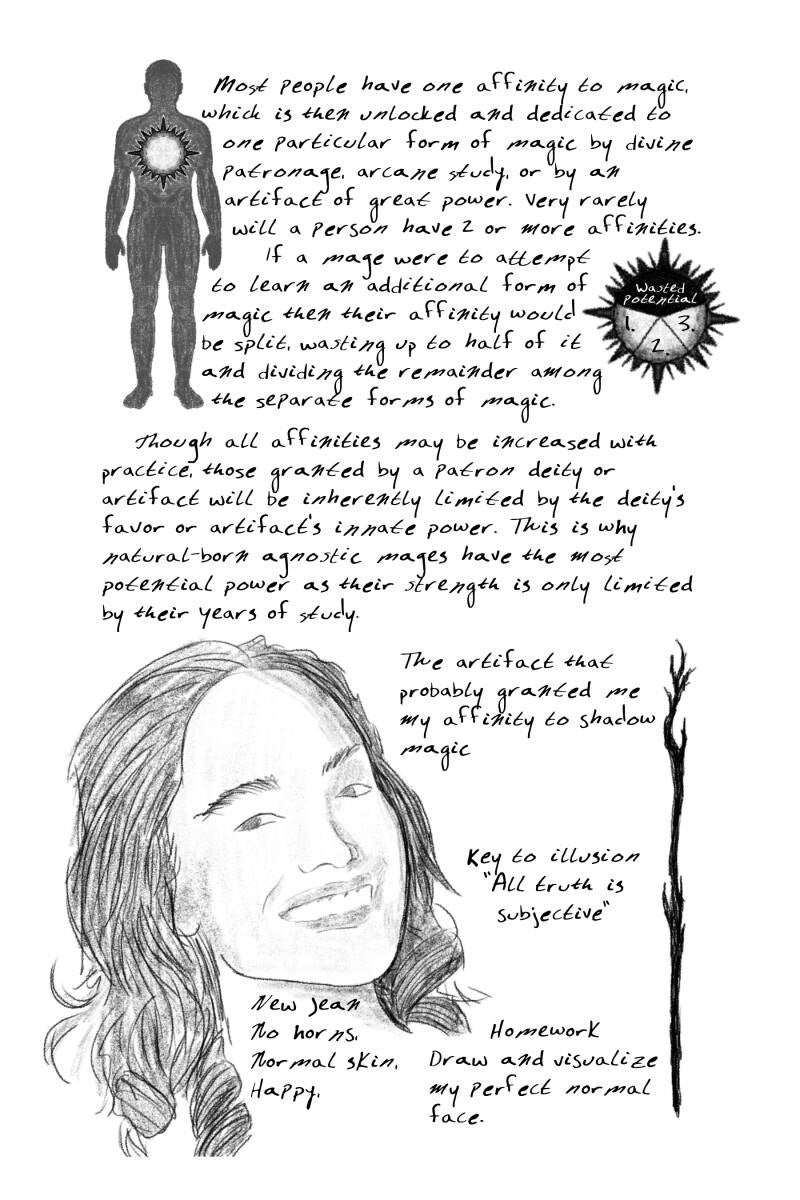 Most people have one affinity to magic,
which is then unlocked and dedicated to
one particular form of magic by divine
patronage, arcane study, or by an
artifact of great power. Very rarely
will a person have 2 or more affinities.
If a mage were to attempt
to learn an additional form of
magic then their affinity would
be split, wasting up to half of it
and dividing the remainder among
the separate forms of magic.
Wasted
Potential
1.
3.
2.
Though all affinities may be increased with
practice, those granted by a patron deity or
artifact will be inherently limited by the deity's
favor or artifact's innate power. This is why
natural-born agnostic mages have the most
potential power as their strength is only limited
by their years of study.
The artifact that
probably granted me
my affinity to shadow
magic
Key to illusion
"All truth is
subjective"
New Jean
No horns.
Normal skin.
Happy.
Homework
Draw and visualize
my perfect normal
face.